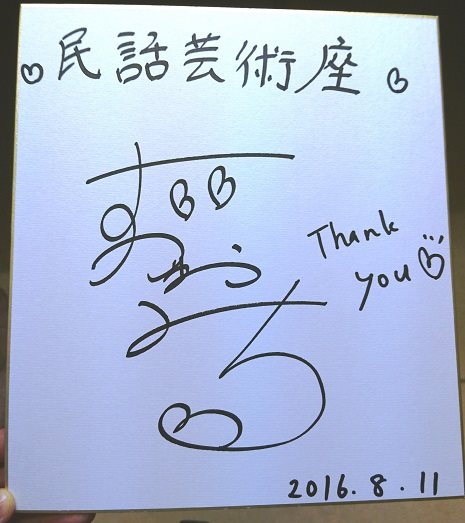 民話芸術座
Thank
you
2016.8.11